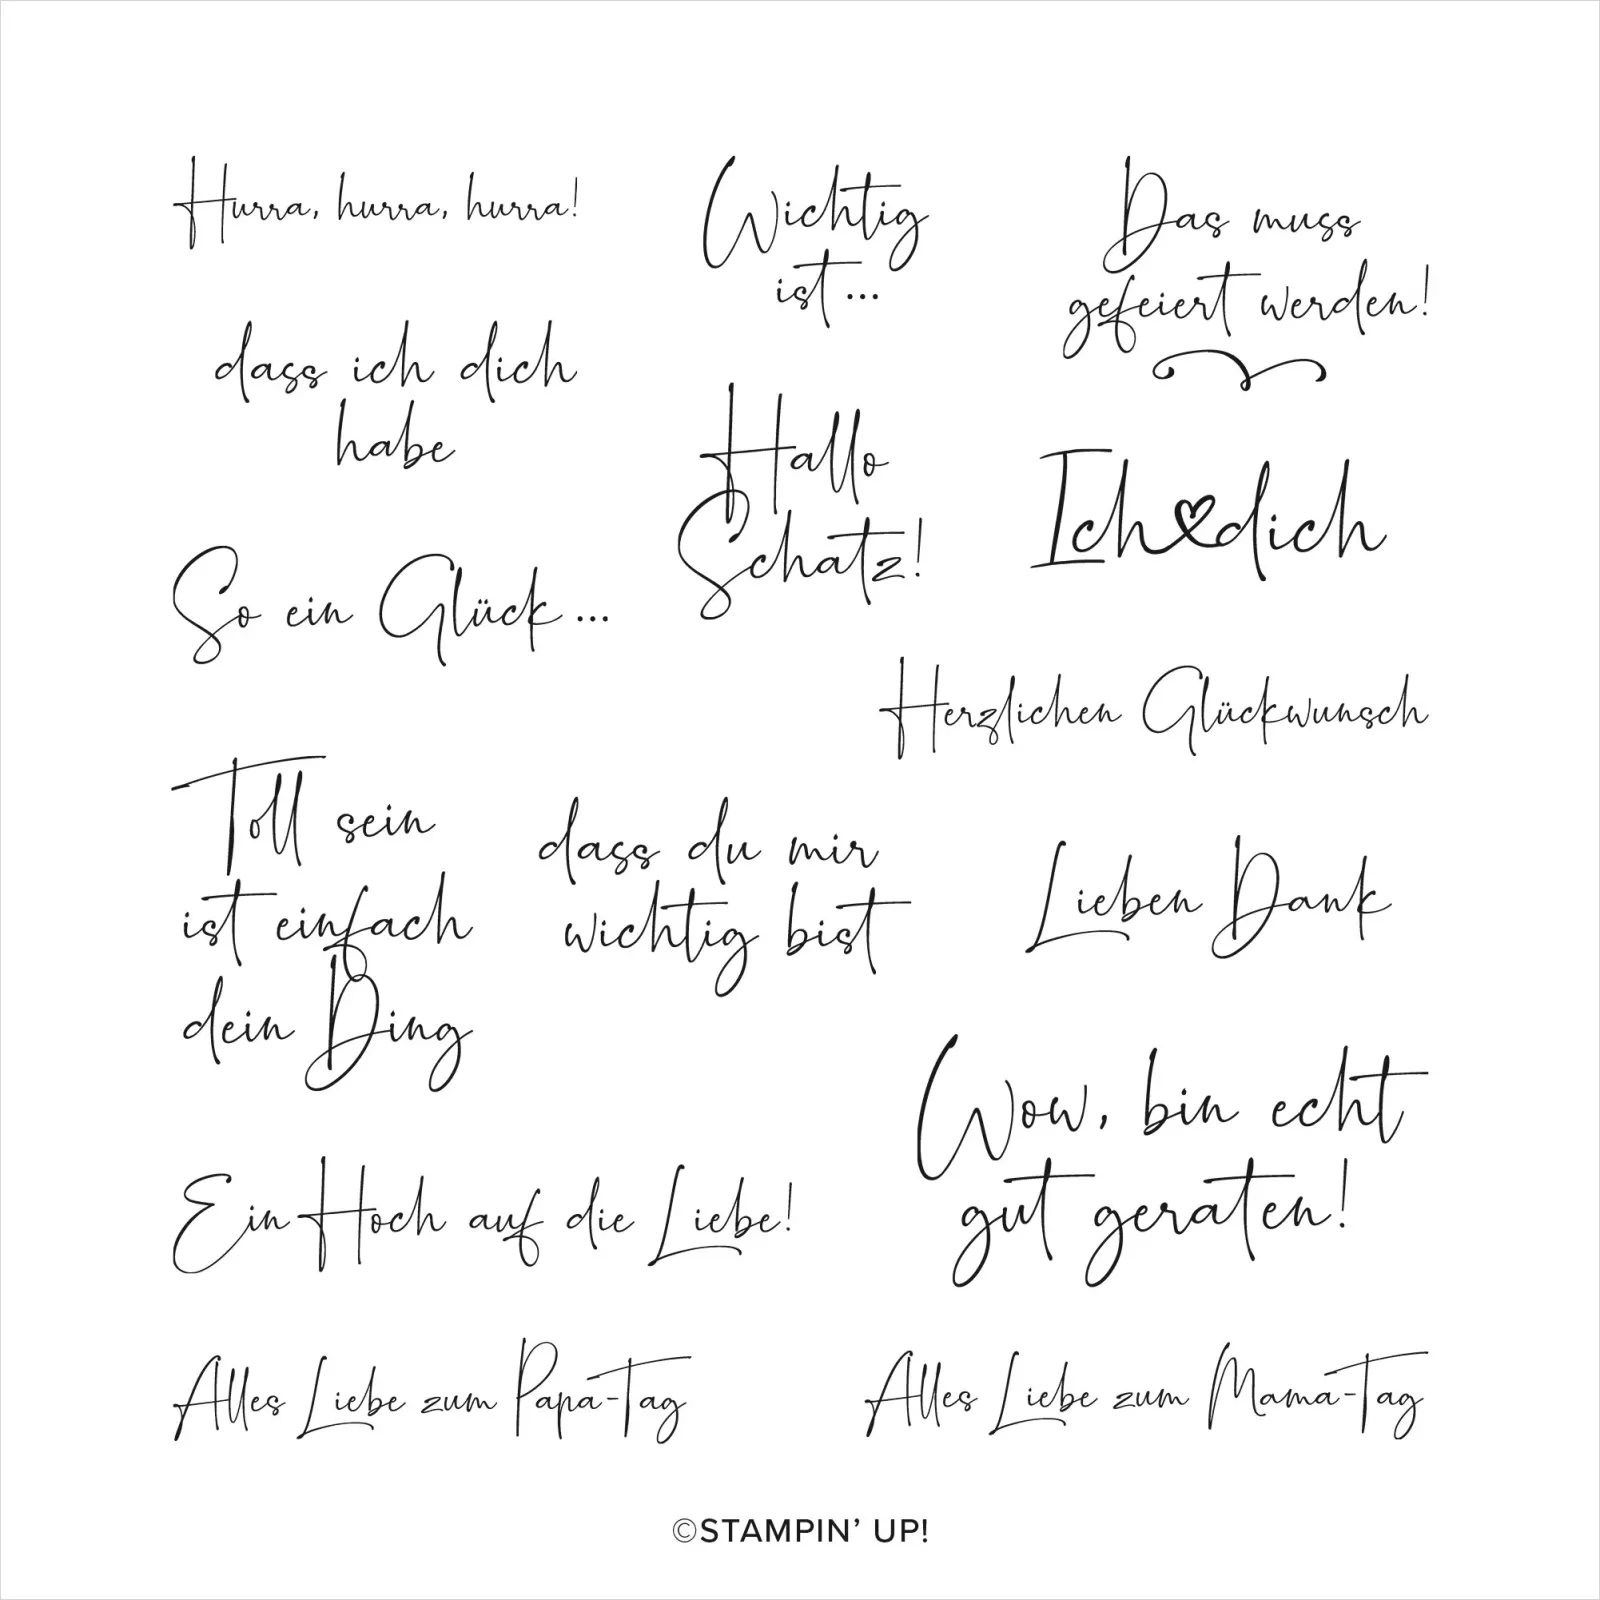 Hurra, hurra, hurra!
Wichtig
ist ...
Das muss
gefeiert werden!
dass ich dich
habe
Hallo
Schatz!
Ich dich
So ein Glück ...
Herzlichen Glückwunsch
Toll sein
ist einfach
dein Ding
dass du mir
wichtig bist
Lieben Dank
Wow, bin echt
gut geraten!
Ein Hoch auf die Liebe!
Alles Liebe zum Papa-Tag
Alles Liebe zum Mama-Tag
©STAMPIN' UP!